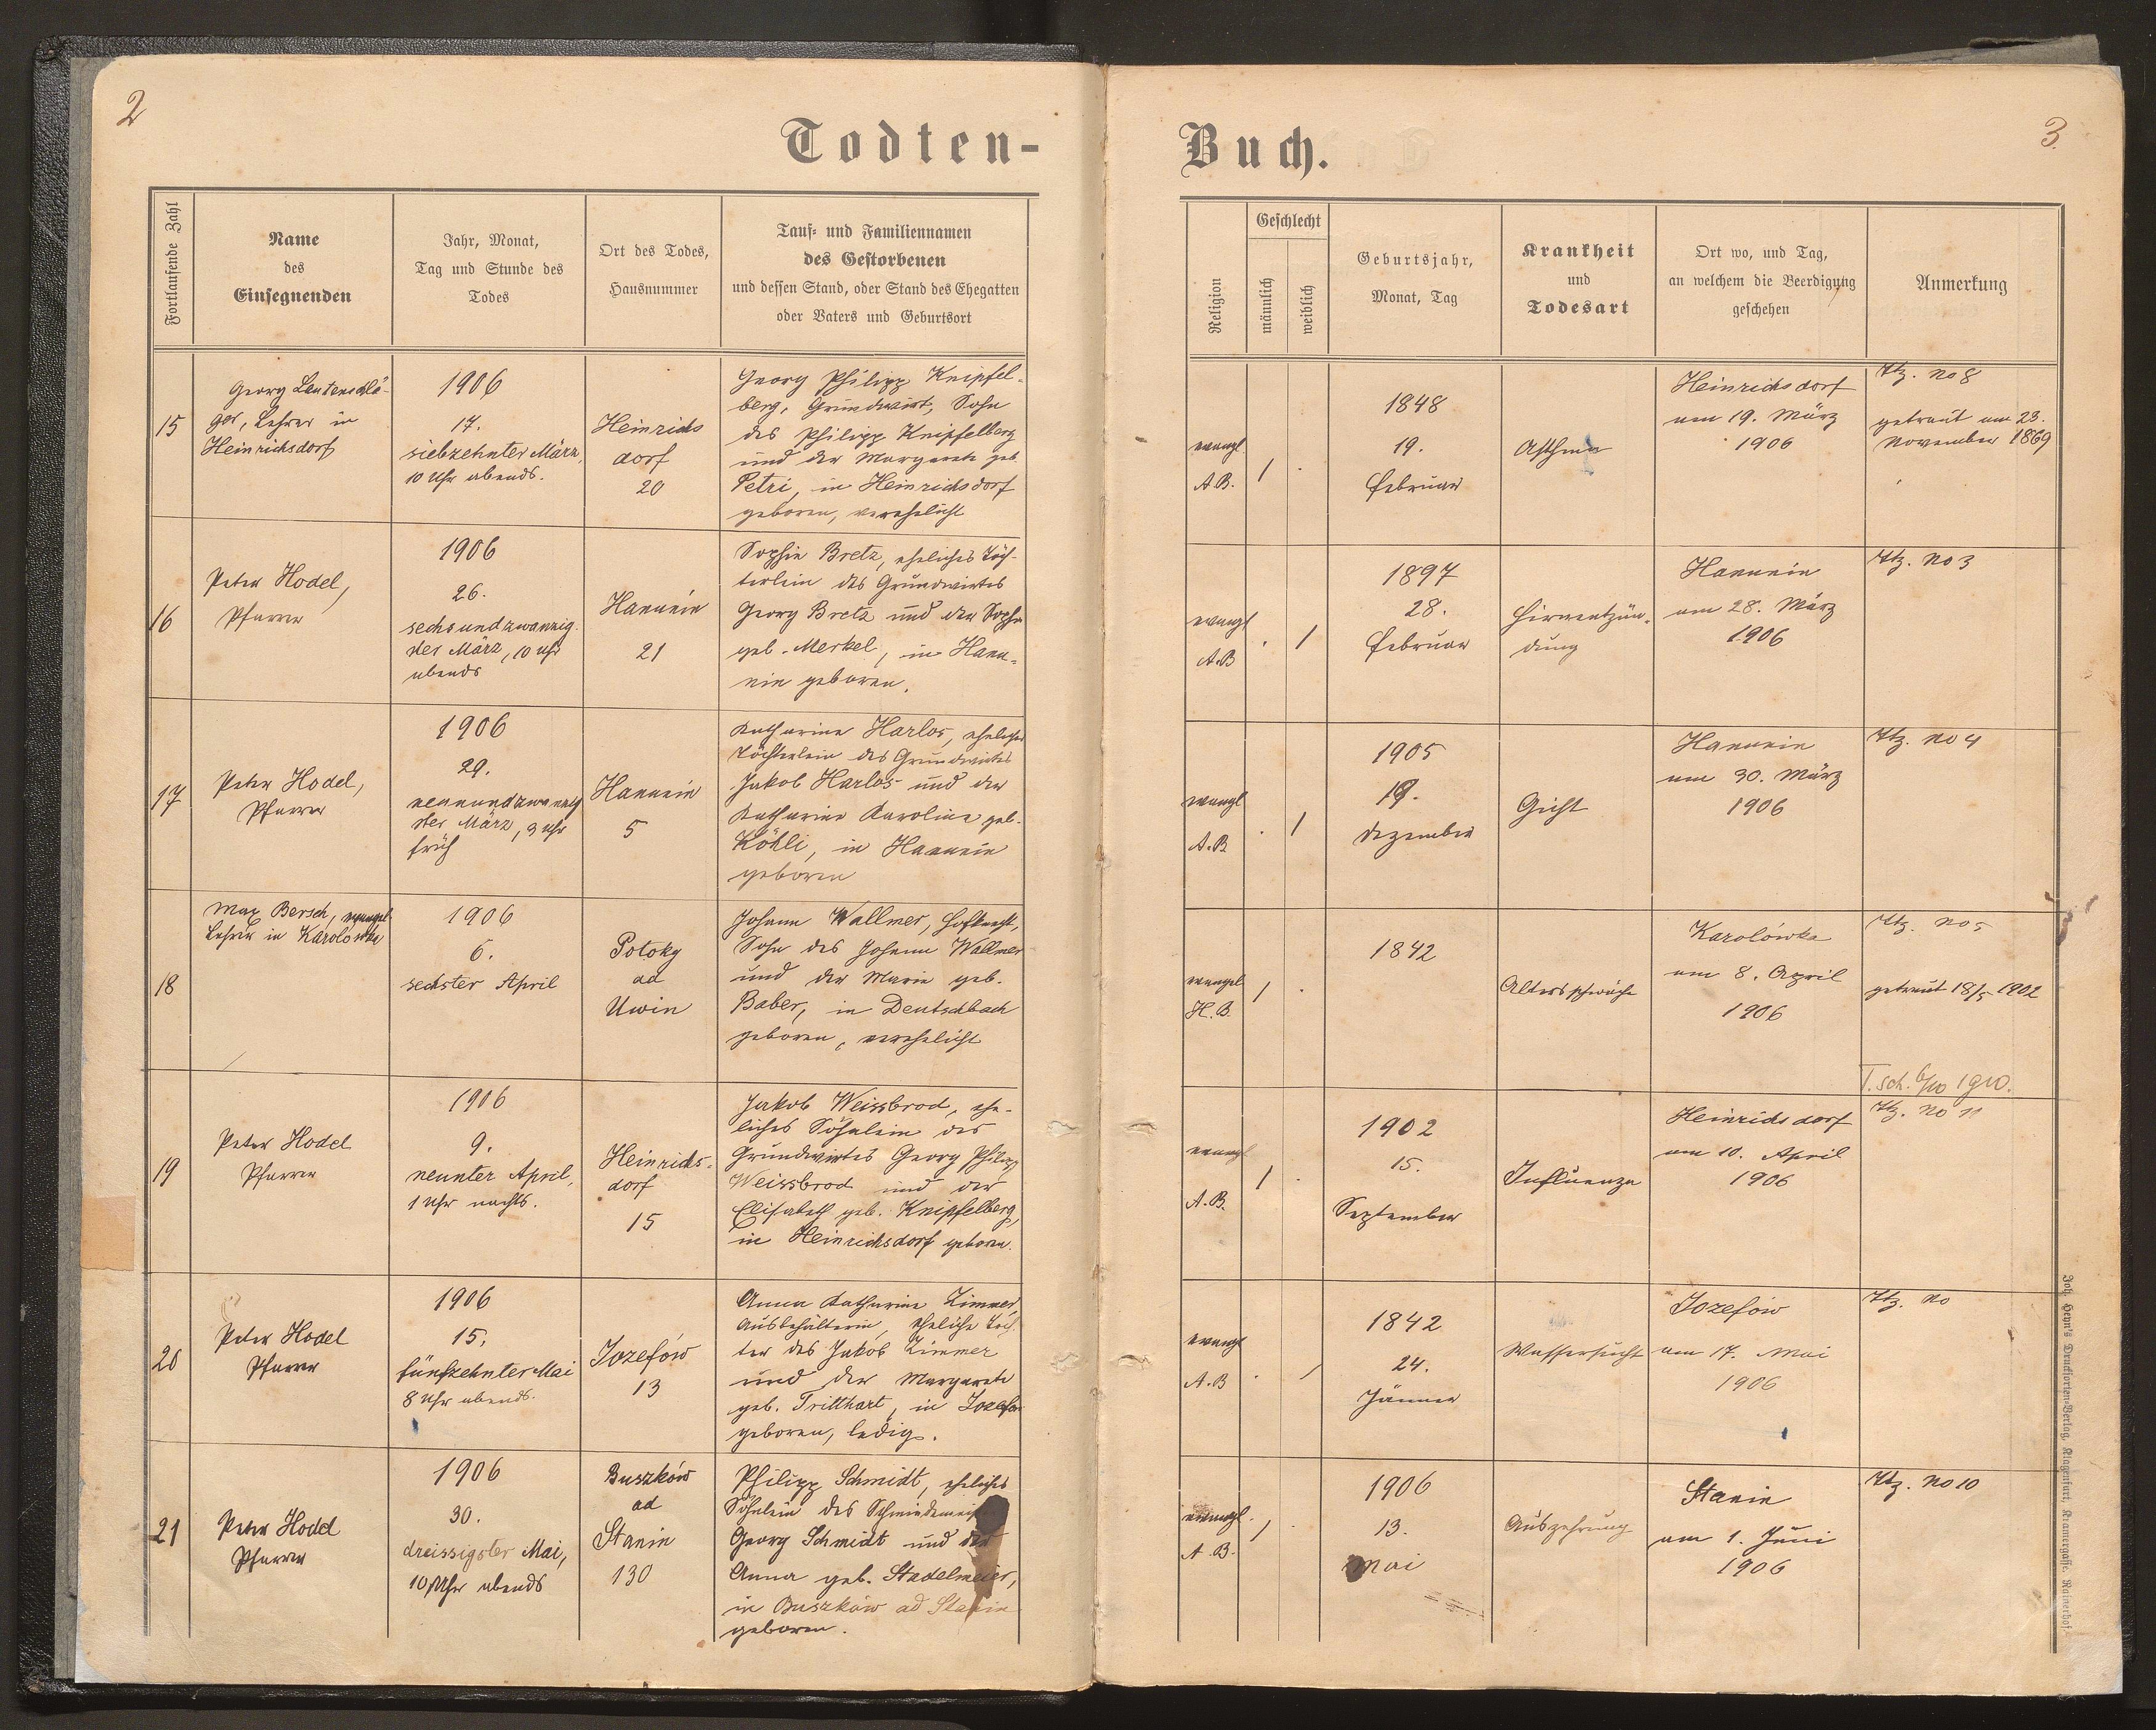 2
Todten-
Fortlaufende Zahl
Name
des
Einsegnenden
Jahr, Monat,
Tag und Stunde des
Todes
Ort des Todes,
Hausnummer
Tauf- und Familiennamen
des Gestorbenen
und dessen Stand, oder Stand des Ehegatten
oder Vaters und Geburtsort
15
Georg Lautenschlä-
ger, Lehrer in
Heinrichsdorf
1906
17.
siebzehnter März,
10 Uhr abends.
Heinrichs
dorf
20
Georg Philipp Knipfel-
berg, Grundwirt, Sohn
des Philipp Knipfelberg
und der Margareta geb.
Petri, in Heinrichsdorf
geboren, verehelicht
16
Peter Hodel,
Pfarrer
1906
26.
sechsundzwanzig-
ster März, 10 Uhr
abends
Hanunin
21
Sophie Bretz, eheliches Töch-
terlein des Grundwirtes
Georg Bretz und der Sophie
geb. Merkel, in Hanu-
nin geboren.
17
Peter Hodel,
Pfarrer
1906
29.
neunundzwanzig
ster März, 3 Uhr
früh
Hanunin
5
Katharina Harlos, eheliches
Töchterlein des Grundwirtes
Jakob Harlos und der
Katharina Karolina geb.
Köhli, in Hanunin
geboren
18
Max Bersch, evangel
Lehrer in Karolówka
1906
6.
sechster April
Potoky
ad
Uwin
Johann Wallmer, Hofknecht,
Sohn des Johann Wallmer
und der Maria geb.
Baber, in Deutschbach
geboren, verehelicht
19
Peter Hodel
Pfarrer
1906
9.
neunter April,
1 Uhr nachts.
Heinrichs-
dorf
15
Jakob Weissbrod, ehe-
liches Söhnlein des
Grundwirtes Georg Philipp
Weissbrod und der
Elisabeth geb. Knipfelberg,
in Heinrichsdorf geboren.
20
Peter Hodel
Pfarrer
1906
15.
fünfzehnter Mai
8 Uhr abends.
Jozefów
13
Anna Katharina Zimmer,
Ausbehälterin, eheliche Toch-
ter des Jakob Zimmer
und der Margareta
geb. Tritthart, in Jozefów
geboren, ledig.
21
Peter Hodel
Pfarrer
1906
30.
dreissigster Mai,
10 Uhr abends
Buszków
ad
Stanin
130
Philipp Schmidt, eheliches
Söhnlein des
Georg Schmidt und der
Anna geb. Stadelmeier,
in Buszków ad Stanin
geboren.
3.
Buch.
Religion
Geschlecht
männlich
weiblich
Geburtsjahr,
Monat, Tag
Krankheit
und
Todesart
Ort wo, und Tag,
an welchem die Beerdigung
geschehen
Anmerkung
evangl.
A.B.
/ .
1848
19.
Februar
Asthma
Heinrichsdorf
am 19. März
1906
Ztz. No 8
getraut am 23.
November 1869
evangl
A.B
. /
1897
28.
Februar
Hirnentzün-
dung
Hanunin
am 28. März
1906
Ztz. No 3
evangl
A.B
. /
1905
19.
Dezember
Gicht
Hanunin
am 30. März
1906
Ztz. No 4
evangel
H.B.
/ .
1842
Altersschwäche
Karolówka
am 8. April
1906
Ztz. No 5
getraut 18/5 1902
T. sch. 6/10 1910.
evangl
A.B.
/ .
1902
15.
September
Influenza
Heinrichsdorf
am 10. April
1906
Ztz. No 11
evangl
A.B
. /
1842
24.
Jänner
Wassersucht
Jozefów
am 17. Mai
1906
Ztz. No
evangl.
A.B.
/ .
1906
13.
Mai
Auszehrung
Stanin
am 1. Juni
1906
Ztz. No 10
Joh. Heyn's Drucksorten-Verlag, Klagenfurt, Kramergasse, Rainerhof.